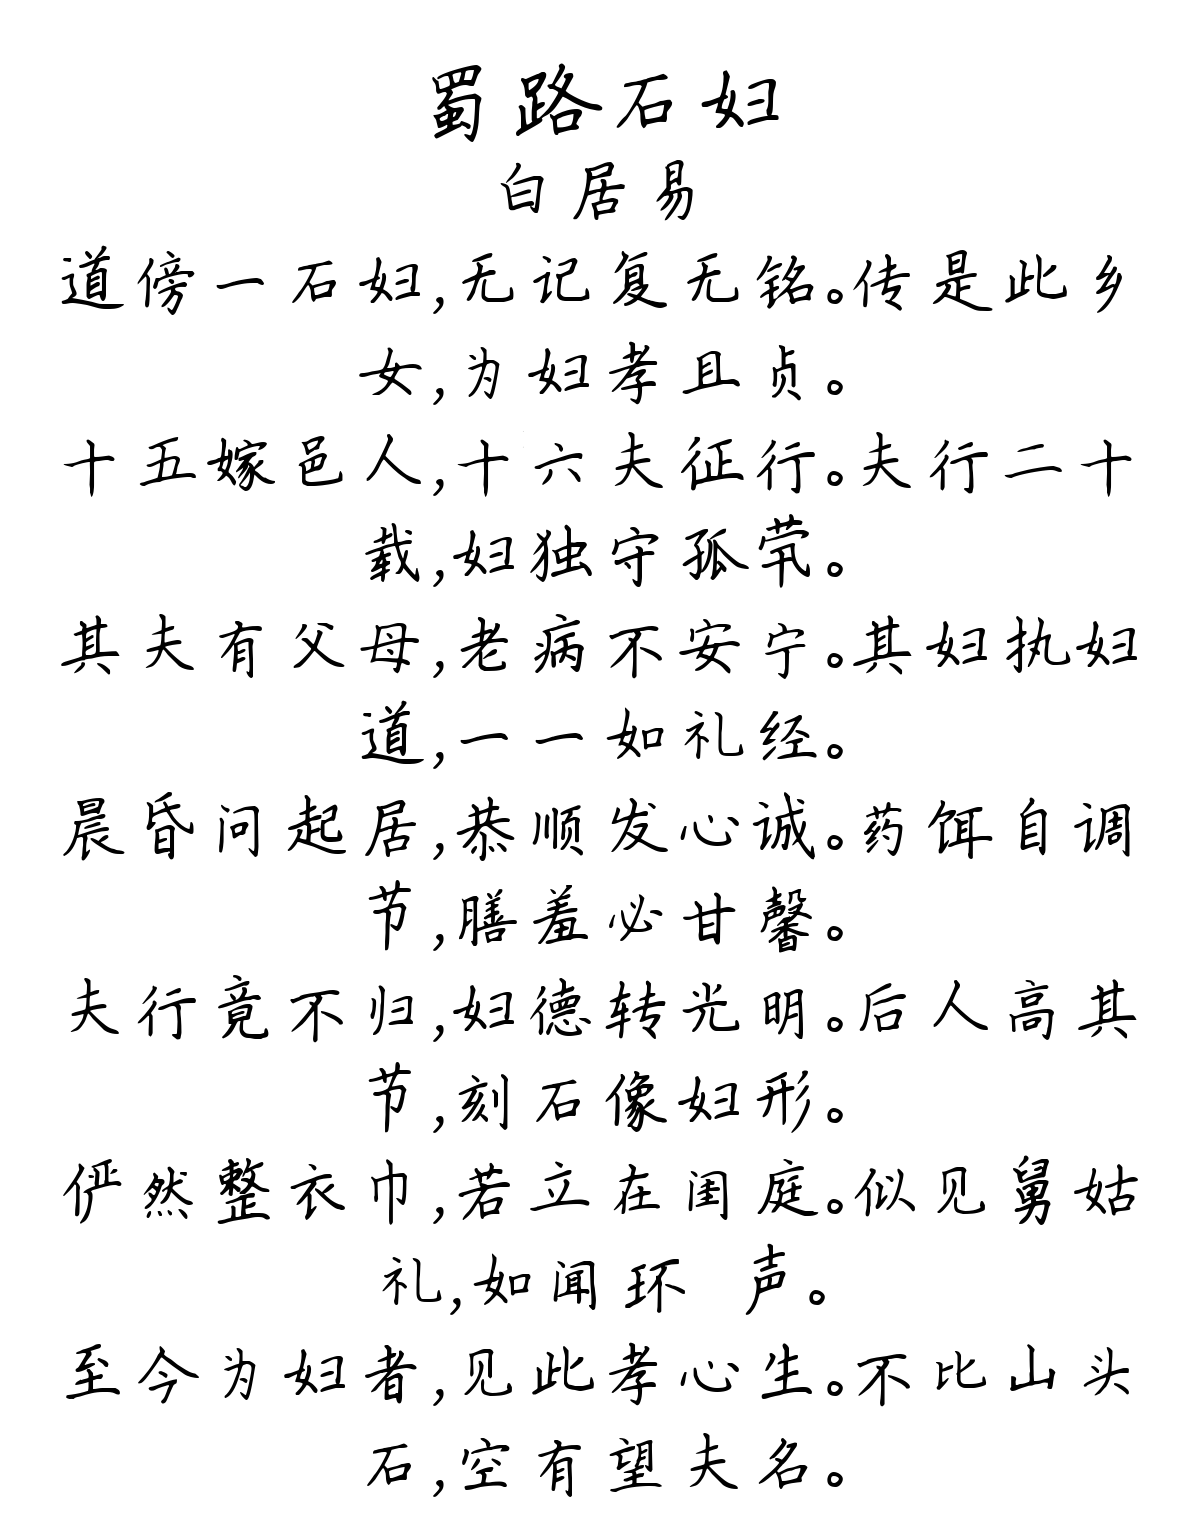 蜀路石妇
白居易
道傍一石妇,无记复无铭。传是此乡
女,为妇孝且贞。
十五嫁邑人,十六夫征行。夫行二十
载,妇独守孤茕。
其夫有父母,老病不安宁。其妇执妇
道,一一如礼经。
晨昏问起居,恭顺发心诚。药饵自调
节,膳羞必甘馨。
夫行竟不归,妇德转光明。后人高其
节,刻石像妇形。
俨然整衣巾,若立在闺庭。似见舅姑
礼,如闻环 声。
至今为妇者,见此孝心生。不比山头
石,空有望夫名。